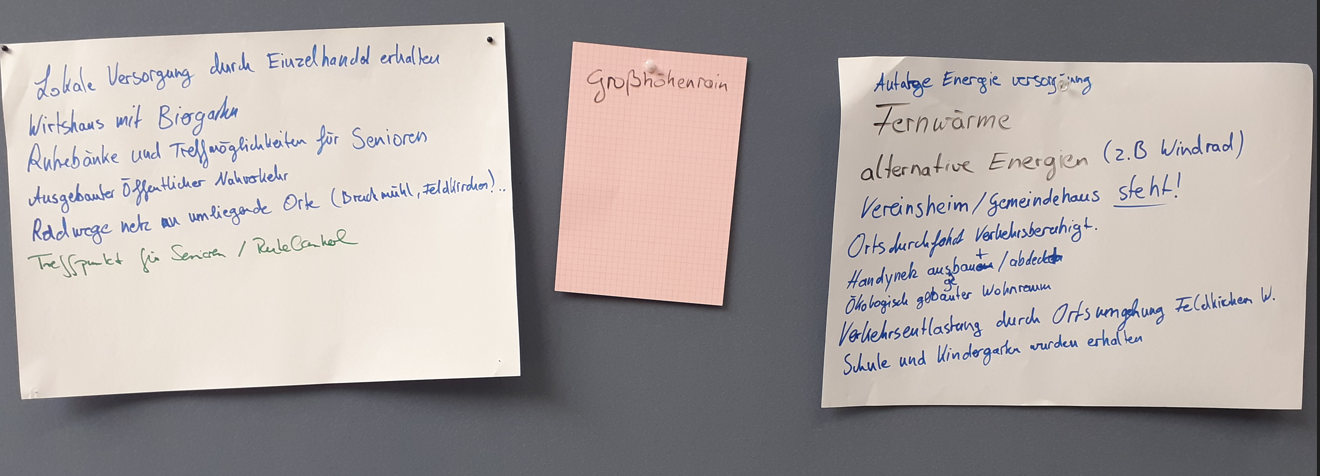 Lokale Versorgung durch Einzelhandel erhalten
Wirtshaus mit Biergarten
Ruhebänke und Treffmöglichkeiten für Senioren
Ausgebauter Öffentlicher Nahverkehr
Radwege netz an umliegende Orte (Bruckmühl, Feldkirchen!..
Treffpunkt für Senioren /
Großhöhenrain
Autarge Energie versorgung
Fernwärme
alternative Energien (z.B Windrad)
Vereinsheim/Gemeindehaus steht!
Ortsdurchfahrt Verkehrsberuhigt.
Handynetz ausgebaut / abdeckt
Ökologisch gebauter Wohnraum
Verkehrsentlastung durch Ortsumgehung Feldkichen W.
Schule und Kindergarten wurden erhalten